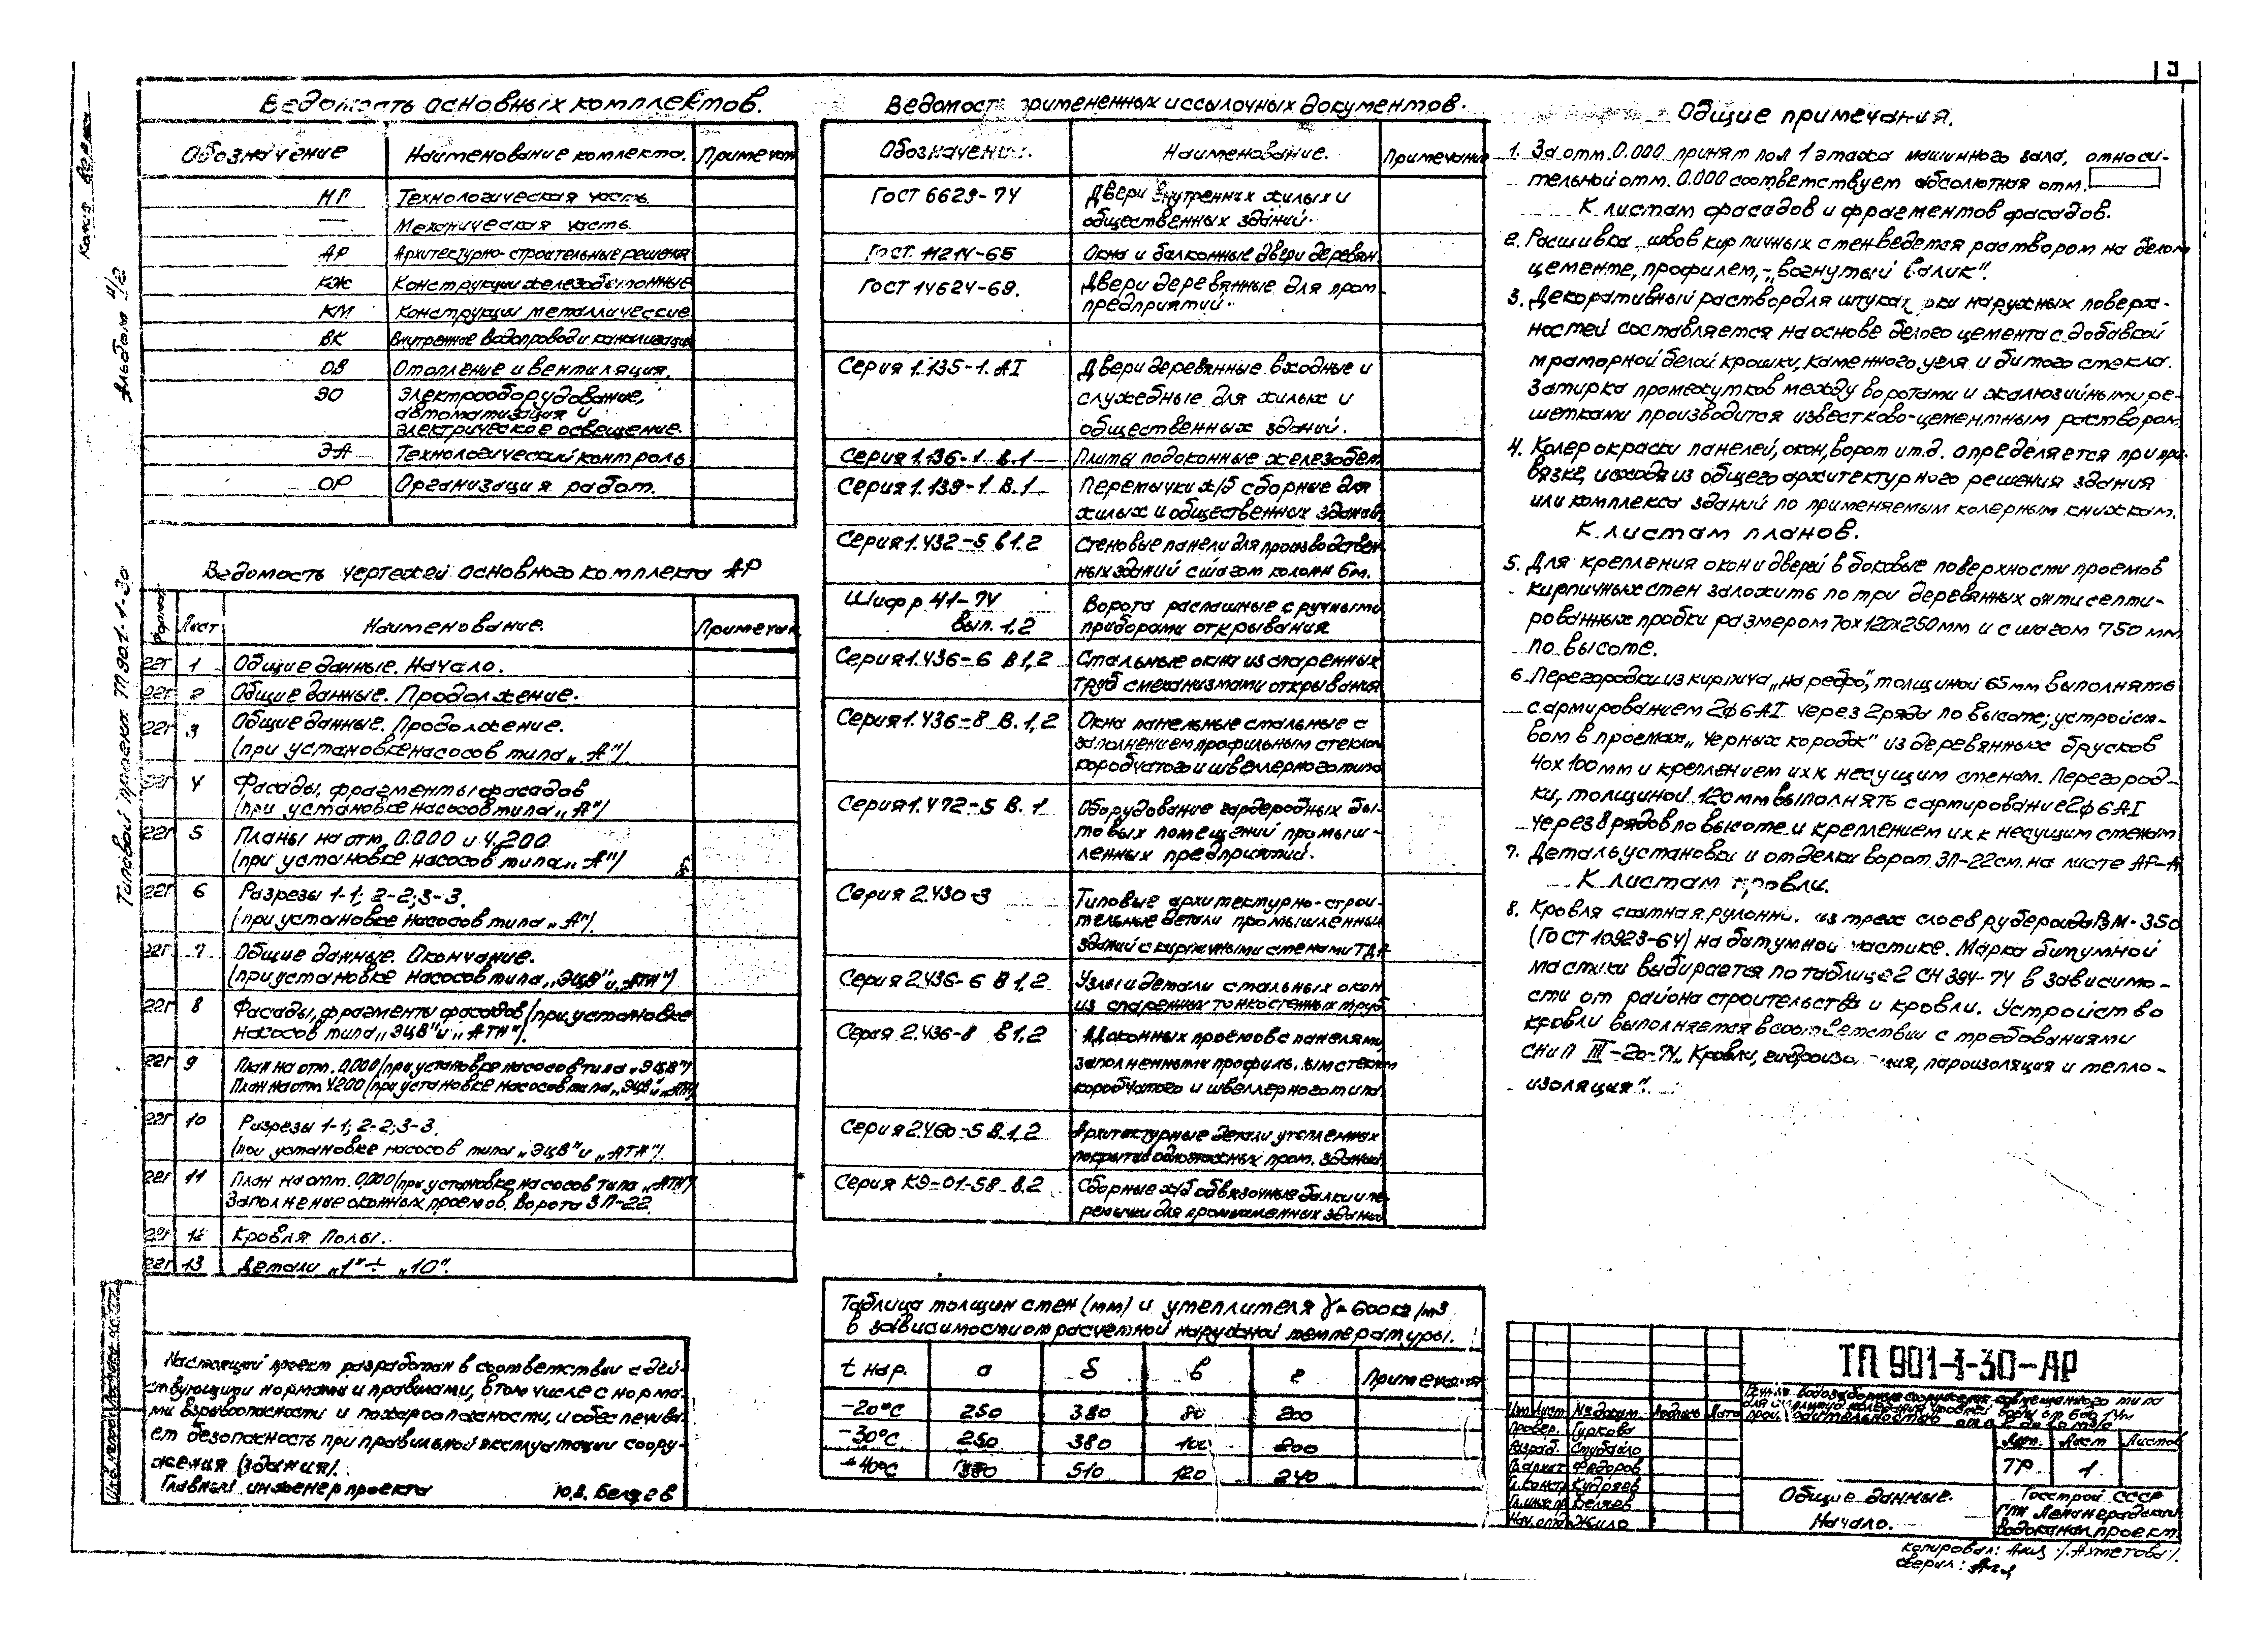 Ведомость основных комплектов.
Обозначение Наименование комплекта. Примечан
НР Технологическая часть.
— Механическая часть.
АР Архитектурно-строительные решения
КЖ Конструкции железобетонные
КМ Конструкции металлические
ВК Внутренние водопровод и канализация
ОВ Отопление и вентиляция.
ЭО Электрооборудование,
автоматизация и
электрическое освещение.
ЭА Технологический контроль
ОР Организация работ.
Ведомость чертежей основного комплекта АР
Формат Лист Наименование. Примечан
22Г 1 Общие данные. Начало.
22Г 2 Общие данные. Продолжение.
22Г 3 Общие данные. Продолжение.
(при установке насосов типа „А")
22Г 4 Фасады, фрагменты фасадов
(при установке насосов типа „А")
22Г 5 Планы на отм. 0.000 и 4.200
(при установке насосов типа „А")
22Г 6 Разрезы 1-1; 2-2; 3-3.
(при установке насосов типа „А").
22Г 7 Общие данные. Окончание.
(при установке насосов типа „ЭЦВ" и „АТН")
22Г 8 Фасады, фрагменты фасадов (при установке
насосов типа „ЭЦВ" и „АТН").
22Г 9 План на отм. 0.000 (при установке насосов типа „ЭЦВ")
План на отм. 4.200 (при установке насосов типа „ЭЦВ" и „АТН")
22Г 10 Разрезы 1-1; 2-2; 3-3.
(при установке насосов типа „ЭЦВ" и „АТН").
22Г 11 План на отм. 0.000 (при установке насосов типа „АТН")
Заполнение оконных проемов. Ворота ЗП-22.
22Г 12 Кровля Полы.
22Г 13 Детали „1" ÷ „10".
Настоящий проект разработан в соответствии с дей-
ствующими нормами и правилами, в том числе с норма-
ми взрывоопасности и пожароопасности, и обеспечива-
ет безопасность при правильной эксплуатации соору-
жения (здания).
Главный инженер проекта Ю.В. Беляев
Ведомость примененных и ссылочных документов.
Обозначение. Наименование. Примечание
ГОСТ 6629-74 Двери внутренних жилых и
общественных зданий.
ГОСТ 11214-65 Окна и балконные двери деревян.
ГОСТ 14624-69. Двери деревянные для пром.
предприятий.
Серия 1.135-1. АI Двери деревянные входные и
служебные для жилых и
общественных зданий.
Серия 1.136-1 В.1 Плиты подоконные железобет
Серия 1.139-1 В.1 Перемычки ж/б сборные для
жилых и общественных зданий.
Серия 1.432-5 в 1.2 Стеновые панели для производствен
ных зданий с шагом колонн 6м.
Шифр 41-74 Ворота распашные с ручными
вып. 1,2 приборами открывания
Серия 1.436-6 В 1,2 Стальные окна из спаренных
труб с механизмами открывания
Серия 1.436-8 В. 1,2 Окна панельные стальные с
заполнением профильным стеклом
коробчатого и швеллерного типа
Серия 1.472-5 В. 1 Оборудование гардеробных бы-
товых помещений промыш-
ленных предприятий.
Серия 2.430-3 Типовые архитектурно-строи-
тельные детали промышленных
зданий с кирпичными стенами ТДА
Серия 2.436-6 В 1,2 Узлы и детали стальных окон
из спаренных тонкостенных труб.
Серия 2.436-8 в 1,2 оконных проемов с панелями
заполненными профиль. ым стеклом
коробчатого и швеллерного типа
Серия 2.460-5 В.1,2 Архитектурные детали утепленных
покрытий одноэтажных пром. зданий.
Серия КЭ-01-58 в.2 Сборные ж/б обвязочные балки и пе-
ремычки для промышленных зданий
Таблица толщин стен (мм) и утеплителя γ=600кг/м3
в зависимости от расчетной наружной температуры.
t нар. а б в г Примечания
-20°С 250 380 80 200
-30°С 250 380 100 200
-40°С 380 510 120 240
Общие примечания.
1. За отм. 0.000 принят пол 1 этажа машинного зала, относи-
тельной отм. 0.000 соответствует абсолютная отм.
К листам фасадов и фрагментов фасадов.
2. Расшивка швов кирпичных стен ведется раствором на белом
цементе, профилем, - „вогнутый валик".
3. Декоративный раствор для штукат рки наружных поверх-
ностей составляется на основе белого цемента с добавкой
мраморной белой крошки, каменного угля и битого стекла.
Затирка промежутков между воротами и жалюзийными ре-
шетками производится известково-цементным раствором.
4. Колер окраски панелей, окон, ворот и т.д. определяется при при-
вязке, исходя из общего архитектурного решения здания
или комплекса зданий по применяемым колерным книжкам.
К листам планов.
5. Для крепления окон и дверей в боковые поверхности проемов
кирпичных стен заложить по три деревянных антисепти-
рованных пробки размером 70х120х250мм и с шагом 750мм
по высоте.
6. Перегородки из кирпича „на ребро", толщиной 65мм выполнять
с армированием 2ф6АI через 2 ряда по высоте; устройст-
вом в проемах „черных коробок" из деревянных брусков
40х100мм и креплением их к несущим стенам. Перегород-
ки, толщиной 120мм выполнять с армирование 2ф6АI
через 8 рядов по высоте и креплением их к несущим стенам
7. Деталь установки и отделки ворот ЗП-22 см. на листе АР-11
К листам кровли.
8. Кровля скатная, рулонн. из трех слоев рубероида РМ-350
(ГОСТ 10923-64) на битумной мастике. Марка битумной
мастики выбирается по таблице 2 СН 394-74 в зависимо-
сти от района строительства и кровли. Устройство
кровли выполняется в соответствии с требованиями
СНиП III-20-74 „Кровли, гидроизо. ция, пароизоляция и тепло-
изоляция".
ТП 901-1-30-АР
водозаборные сооружения совмещенного типа
для амплитуд колебания уровней воды от 6 до 14м
производительностью от 0.2 до 1.0 м3/с
Изм Лист № докум. Подпись Дата
Провер. Гуркова
Разраб. Стубайло
Гл.архит Федоров
Гл.конст. Кудряев
Гл.инж.пр Беляев
Нач.отд. Жило
Лит. Лист Листов
ТР 1
Общие данные.
Начало.
Госстрой СССР
ГПИ Ленинградский
Водоканалпроект.
копировал: /Ахметова/.
сверил:
Типовой проект ТП 901-1-30
Альбом